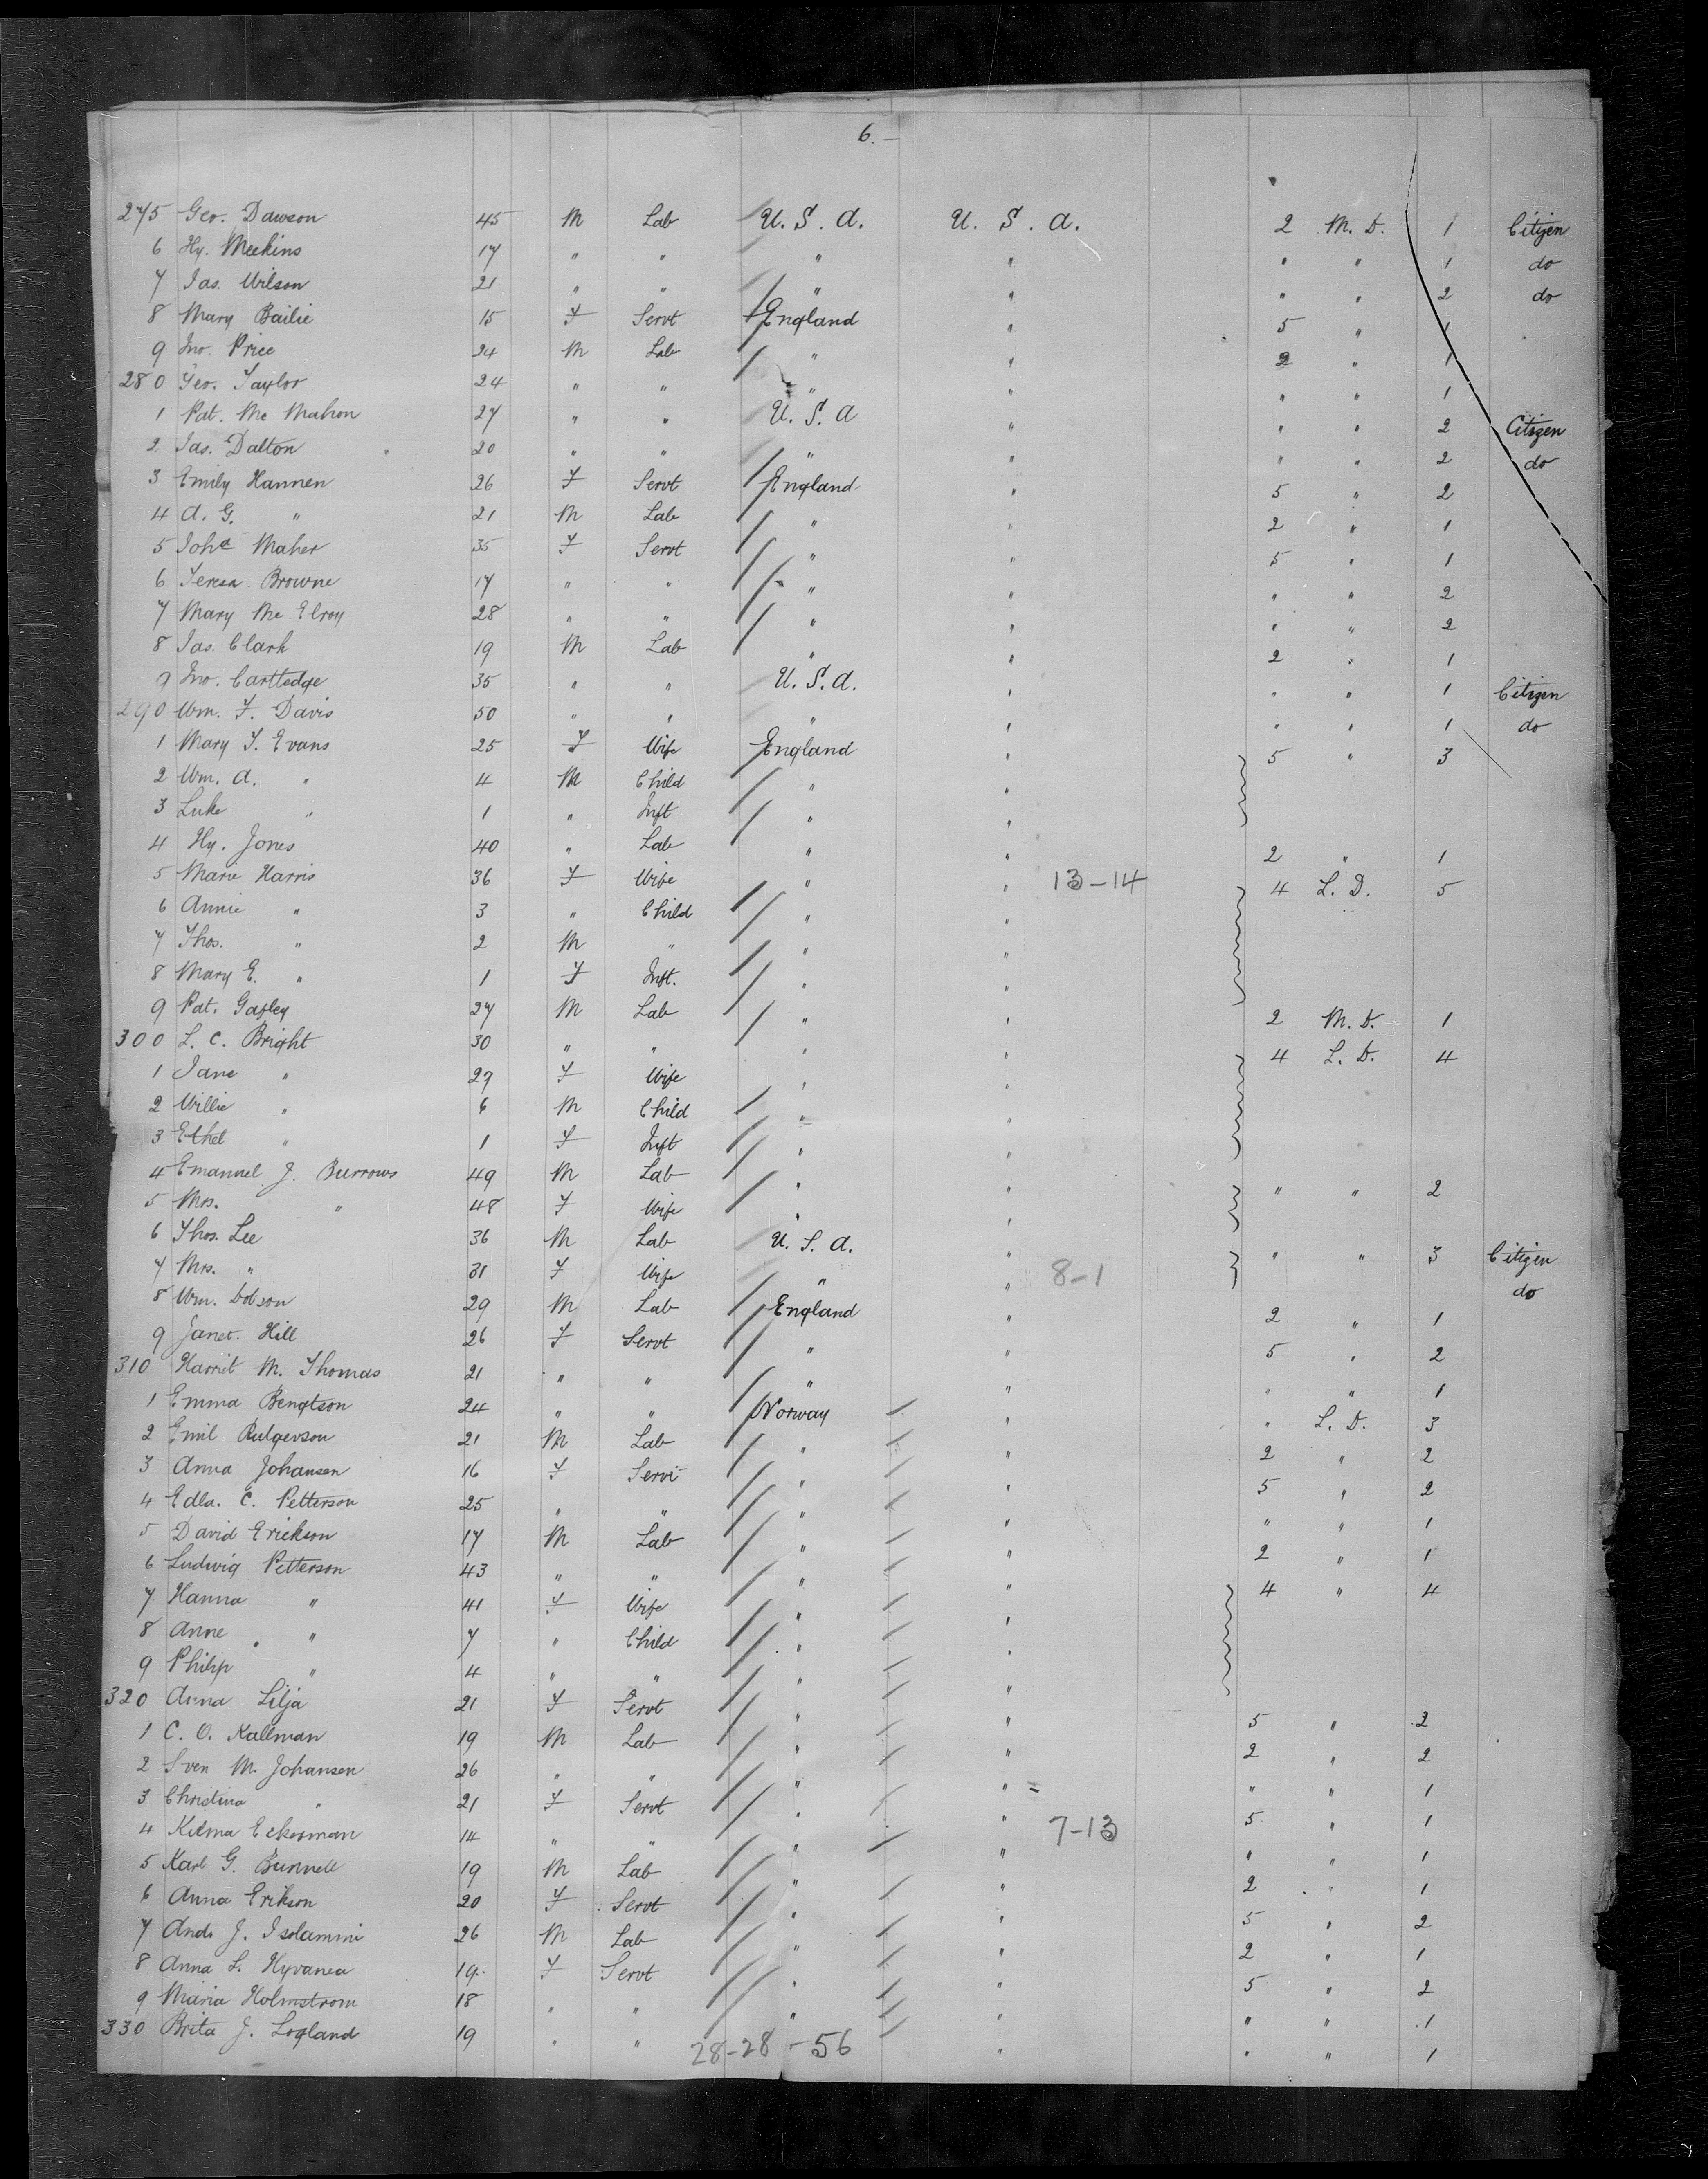 6.-
275 Geo. Dawson 45 M Lab U.S.A. U.S.A. 2 M.D. 1 Citizen
6 Hy. Meekins 17 " " " " " " 1 do
7 Jas. Wilson 21 " " " " " " 2 do
8 Mary Bailie 15 F Servt England " 5 " 1
9 Jno. Price 24 M Lab " " 2 " 1
280 Geo. Taylor 24 " " " " " " 1
1 Pat. Mc Mahon 27 " " U.S.A " " " 2 Citizen
2 Jas. Dalton 20 " " " " " " 2 do
3 Emily Hannen 26 F Servt England " 5 " 2
4 A. G. " 21 M Lab " " 2 " 1
5 Maher 35 F Servt " " 5 " 1
6 Teresa Browne 17 " " " " " " 2
7 Mary Mc Elroy 28 " " " " " " 2
8 Jas. Clark 19 M Lab " " 2 " 1
9 Jno. Cartledge 35 " " U.S.A. " " " 1 Citizen
290 Wm. F. Davis 50 " " " " " " 1 do
1 Mary T. Evans 25 F Wife England " 5 " 3
2 Wm. A. " 4 M Child " "
3 Luke " 1 " Inft " "
4 Hy. Jones 40 " Lab " " 2 " 1
5 Marie Harris 36 F Wife " " 13-14 4 L.D. 5
6 Annie " 3 " Child " "
7 Thos. " 2 M " " "
8 Mary E. " 1 F Inft. " "
9 Pat. 27 M Lab " " 2 M.D. 1
300 L. C. Bright 30 " " " " 4 L.D. 4
1 Jane " 29 F Wife " "
2 Willie " 6 M Child " "
3 Ethel " 1 F Inft " "
4 Emanuel J. Burrows 49 M Lab " " " " 2
5 Mrs. " 48 F Wife " "
6 Thos. Lee 36 M Lab U.S.A. " " " 3 Citizen
7 Mrs. " 31 F Wife " " 8-1 do
8 Wm. Dobson 29 M Lab England " 2 " 1
9 Janet Hill 26 F Servt " " 5 " 2
310 Harriet M. Thomas 21 " " " " " " 1
1 Emma Bengtson 24 " " Norway " " L.D. 3
2 Emil Rulgerson 21 M Lab " " 2 " 2
3 Anna Johansen 16 F Servt " " 5 " 2
4 Edla. C. Petterson 25 " " " " " " 1
5 David Erickson 17 M Lab " " 2 " 1
6 Ludwig Petterson 43 " " " " 4 " 4
7 Hanna " 41 F Wife " "
8 Anne " 7 " Child " "
9 Philip " 4 " " " "
320 Anna Lilja 21 F Servt " " 5 " 2
1 C. O. Kallman 19 M Lab " " 2 " 2
2 Sven M. Johansen 26 " " " " = " " 1
3 Christina " 21 F Servt " " 5 " 1
4 Eckerman 14 " " " " 7-13 " " 1
5 Karl G. Bunnell 19 M Lab " " 2 " 1
6 Anna Erikson 20 F Servt " " 5 " 2
7 And. J. Isolammi 26 M Lab " " 2 " 1
8 Anna L. Hyvanea 19 F Servt " " 5 " 2
9 Maria Holmstrom 18 " " " " " " 1
330 Brita J. Logland 19 " " " " " 1
28-28-56